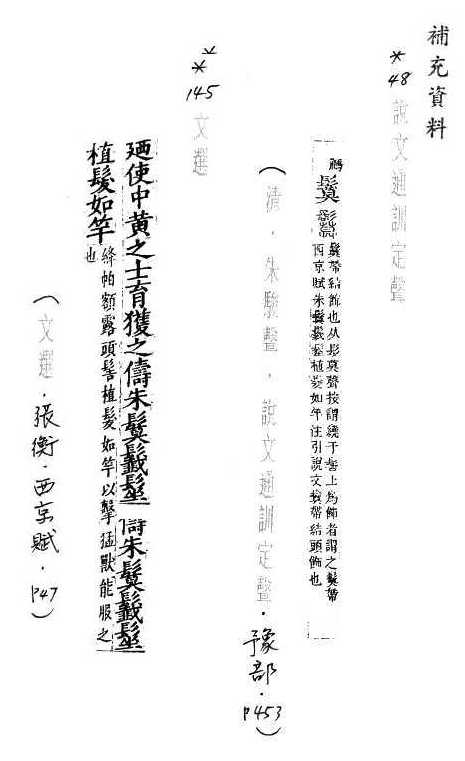 補充資料
*48 說文通訓定聲
鬕 鬕帶結飾也从髟莫聲按謂繞于髻上為飾者謂之鬕帶
西京賦朱鬕髽植髮如竿注引說文鬕帶結頭飾也
(清.朱駿聲.說文通訓定聲.豫部.P453)
**145 文選
廼使中黃之士育獲之儔朱鬕髽 儔朱鬕髽
植髮如竿 絳帕額露頭髻植髮如竿以擊猛獸能服之
也
(文選.張衡.西京賦.P47)